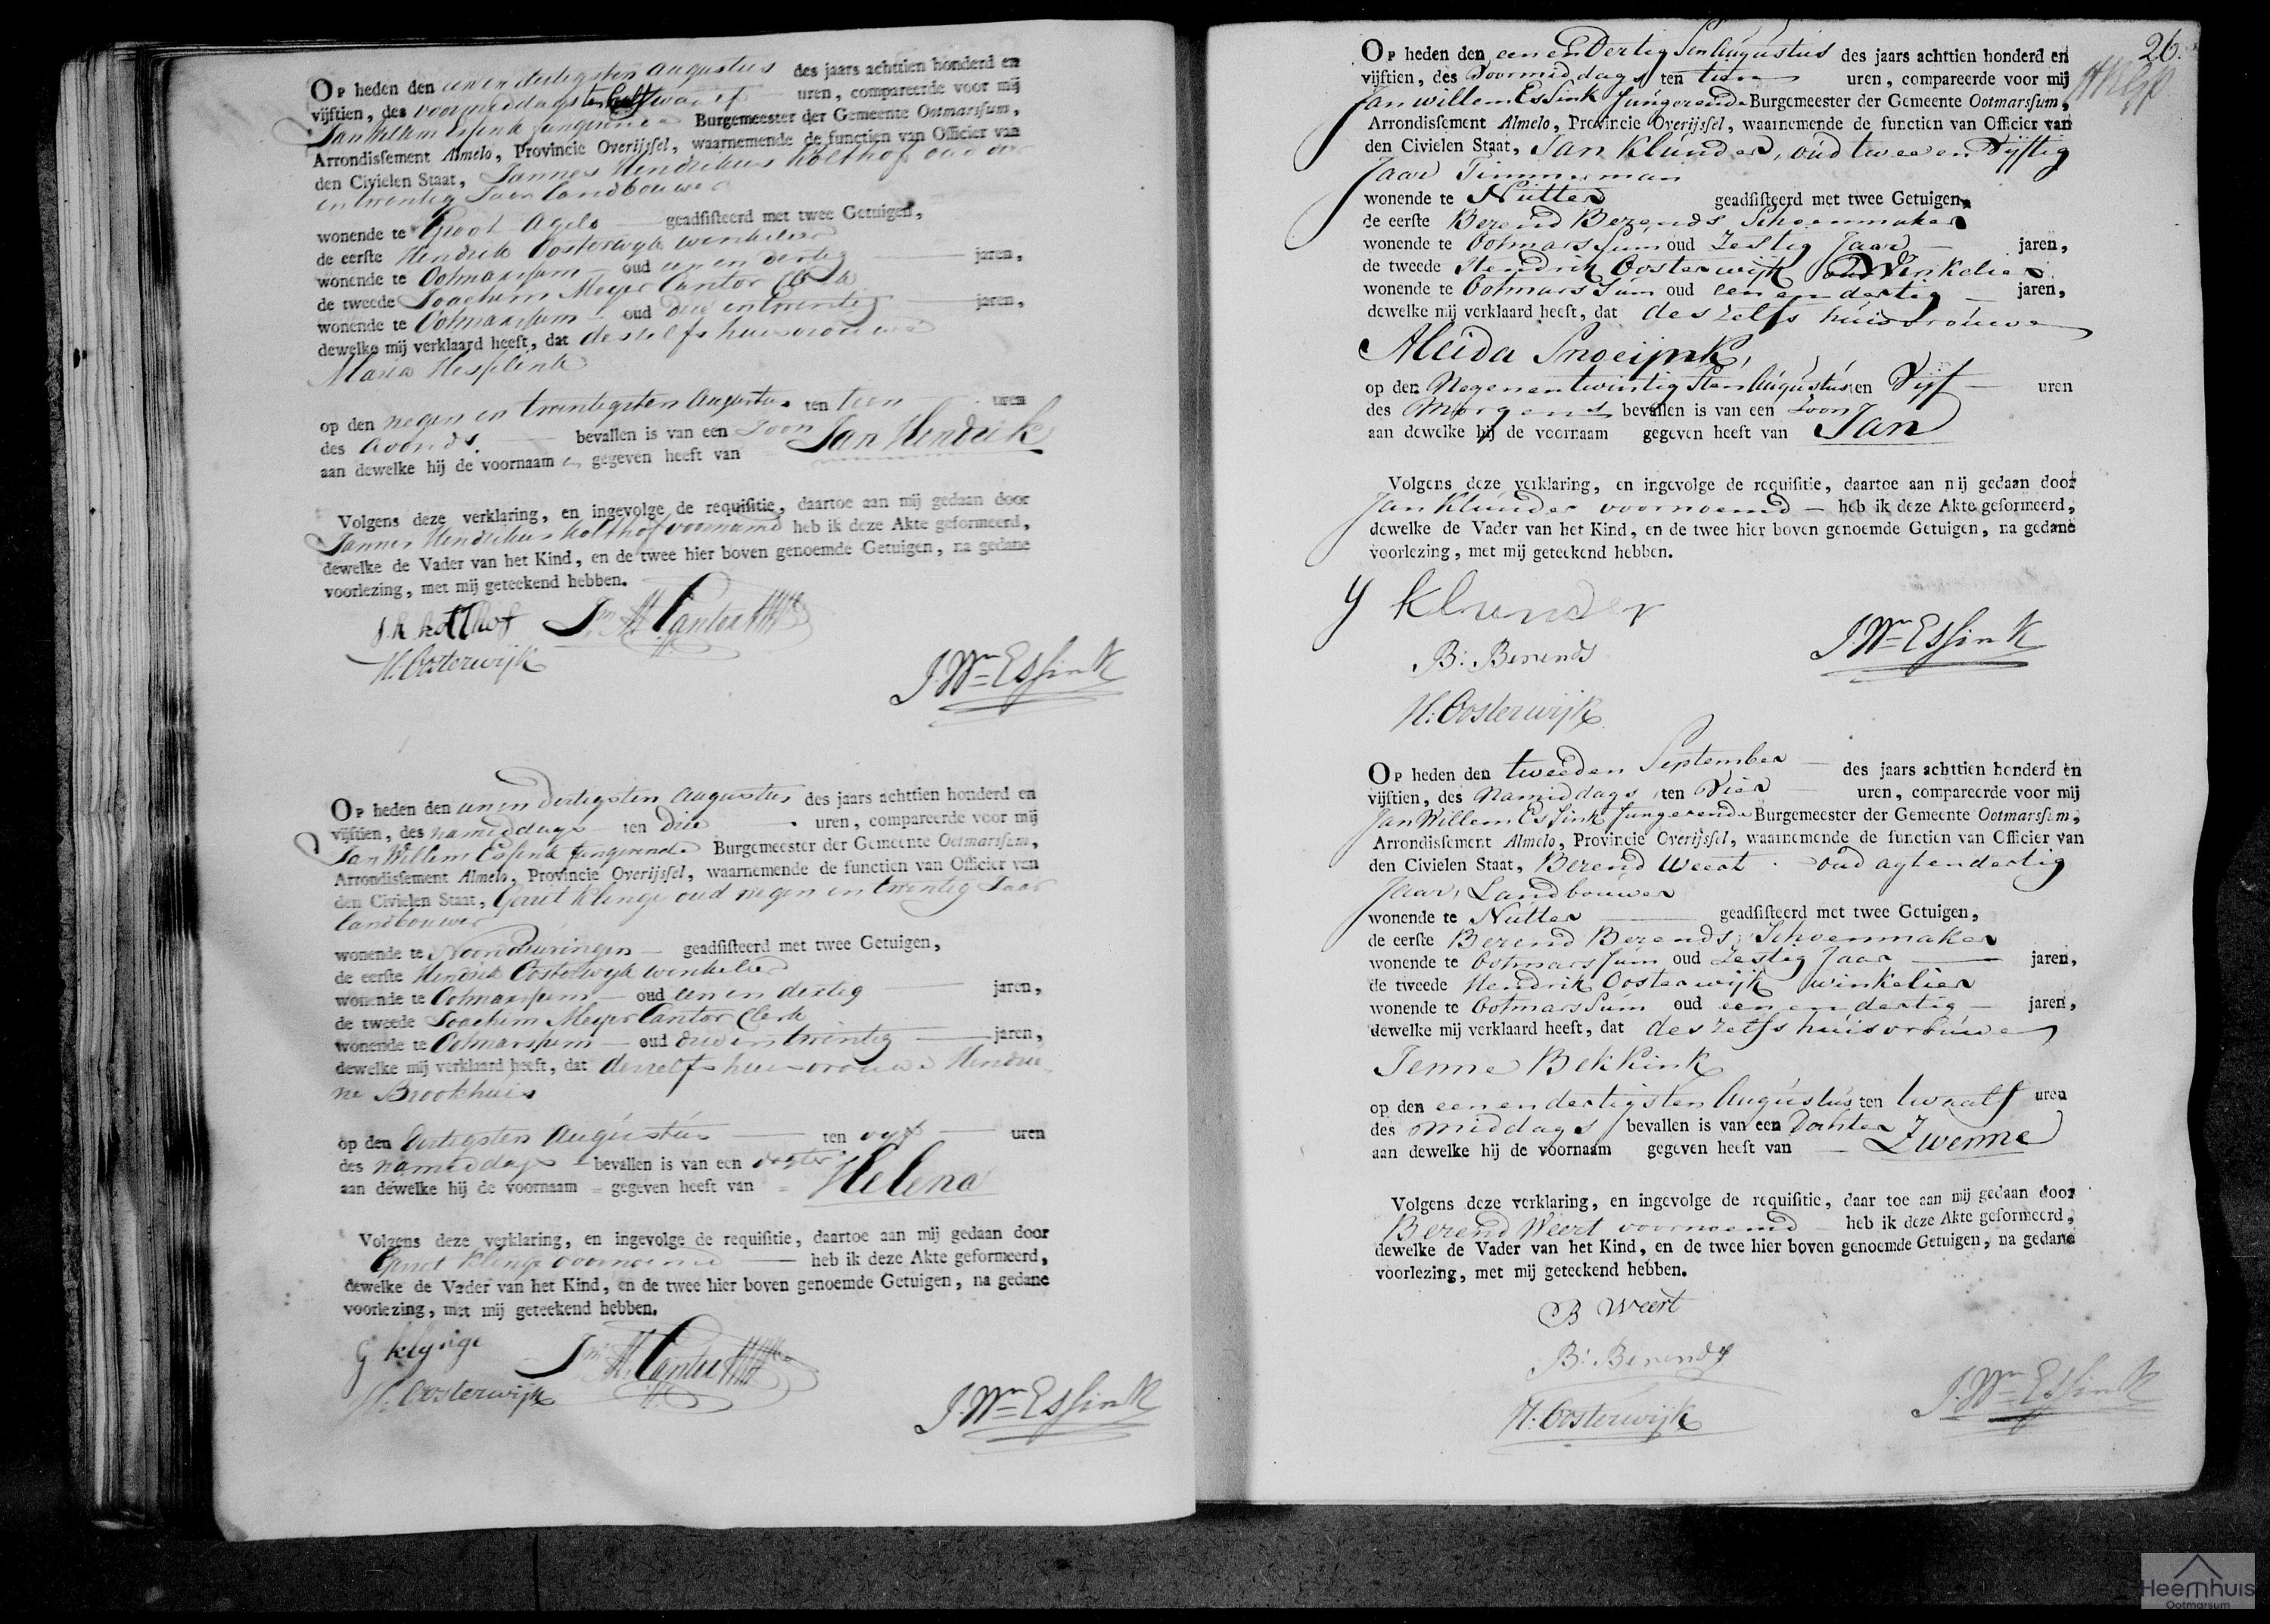 Op heden den een en dertigsten Augustus des jaars achttien honderd en
vijftien, des voormiddags ten half twaalf uren, compareerde voor mij
Jan Willem Essink fungerende Burgemeester der Gemeente Ootmarsum,
Arrondissement Almelo, Provincie Overijssel, waarnemende de functien van Officier van
den Civielen Staat, Jannes Hendrikus Kolthof oud
en twentig Jaar landbouwer
wonende te Groot Agele geadsisteerd met twee Getuigen,
de eerste Hendrik Oosterwyk winkelier
wonende te Ootmarssum oud een en dertig jaren,
de tweede Joachim Meyer Cantor Clerk
wonende te Ootmarssum oud drie en twentig jaren,
dewelke mij verklaard heeft, dat deszelfs huisvrouwe
Maria Hesselink
op den negen en twentigsten Augustus ten tien uren
des Avonds bevallen is van een zoon
aan dewelke hij de voornaam en gegeven heeft van Jan Hendrik
Volgens deze verklaring, en ingevolge de requisitie, daartoe aan mij gedaan door
Jannes Hendrikus Kolthof voornoemd heb ik deze Akte geformeerd,
dewelke de Vader van het Kind, en de twee hier boven genoemde Getuigen, na gedane
voorlezing, met mij geteekend hebben.
J. H. Kolthof Jm M. Cantor
H. Oosterwijk
J. Wm Essink
Op heden den een en dertigsten Augustus des jaars achttien honderd en
vijftien, des namiddags ten drie uren, compareerde voor mij
Jan Willem Essink fungerende Burgemeester der Gemeente Ootmarssum,
Arrondissement Almelo, Provincie Overijssel, waarnemende de functien van Officier van
den Civielen Staat, Gerrit Klinge oud negen en twentig Jaar
landbouwer
wonende te Noorddeurningen geadsisteerd met twee Getuigen,
de eerste Hendrik Oosterwyk winkelier
wonende te Ootmarssum oud een en dertig jaren,
de tweede Joachim Meyer Cantor Clerk
wonende te Ootmarssum oud drie en twintig jaren,
dewelke mij verklaard heeft, dat deszelfs huisvrouwe Hendrie
ne Brookhuis
op den dertigsten Augustus ten vyf uren
des namiddags bevallen is van een dogter
aan dewelke hij de voornaam gegeven heeft van Helena
Volgens deze verklaring, en ingevolge de requisitie, daartoe aan mij gedaan door
Gerrit Klinge voornoemd heb ik deze Akte geformeerd,
dewelke de Vader van het Kind, en de twee hier boven genoemde Getuigen, na gedane
voorlezing, met mij geteekend hebben.
G Klynge Jm M. Cantor
H. Oosterwijk
J. Wm Essink
26.
Op heden den een en Dertigsten Augustus des jaars achttien honderd en
vijftien, des Voormiddags ten tien uren, compareerde voor mij
Jan Willem Essink fungerende Burgemeester der Gemeente Ootmarssum,
Arrondissement Almelo, Provincie Overijssel, waarnemende de functien van Officier van
den Civielen Staat, Jan Klunder, oud twee en Vijftig
Jaar Timmerman
wonende te Nutter geadsisteerd met twee Getuigen,
de eerste Berend Berends Schoenmaker
wonende te Ootmarssum oud Zestig Jaar jaren,
de tweede Hendrik Oosterwijk Winkelier
wonende te Ootmarssum oud een en dertig jaren,
dewelke mij verklaard heeft, dat deszelfs huisvrouwe
Aleida Snoeijink,
op den Negenentwintigsten Augustus ten Vijf uren
des Morgens bevallen is van een Zoon
aan dewelke hij de voornaam gegeven heeft van Jan
Volgens deze verklaring, en ingevolge de requisitie, daartoe aan mij gedaan door
Jan Klunder voornoemd heb ik deze Akte geformeerd,
dewelke de Vader van het Kind, en de twee hier boven genoemde Getuigen, na gedane
voorlezing, met mij geteekend hebben.
J Klunder
J. Wm Essink
B: Berends
H: Oosterwijk
Op heden den tweeden September des jaars achttien honderd en
vijftien, des Namiddags ten Vier uren, compareerde voor mij
Jan Willem Essink fungerende Burgemeester der Gemeente Ootmarssum,
Arrondissement Almelo, Provincie Overijssel, waarnemende de functien van Officier van
den Civielen Staat, Berend Weert oud agtendertig
Jaar, Landbouwer
wonende te Nutter geadsisteerd met twee Getuigen,
de eerste Berend Berends, Schoenmaker
wonende te Ootmarssum oud Zestig Jaar jaren,
de tweede Hendrik Oosterwijk winkelier
wonende te Ootmarssum oud een en dertig jaren,
dewelke mij verklaard heeft, dat deszelfs huisvrouwe
Jenne Bekkink
op den een en dertigsten Augustus ten twaalf uren
des middags bevallen is van een Dochter
aan dewelke hij de voornaam gegeven heeft van Zwenne
Volgens deze verklaring, en ingevolge de requisitie, daar toe aan mij gedaan door
Berend Weert voornoemd heb ik deze Akte geformeerd,
dewelke de Vader van het Kind, en de twee hier boven genoemde Getuigen, na gedane
voorlezing, met mij geteekend hebben.
B Weert
B: Berends
H. Oosterwijk
J. Wm Essink
Heemhuis
Ootmarsum